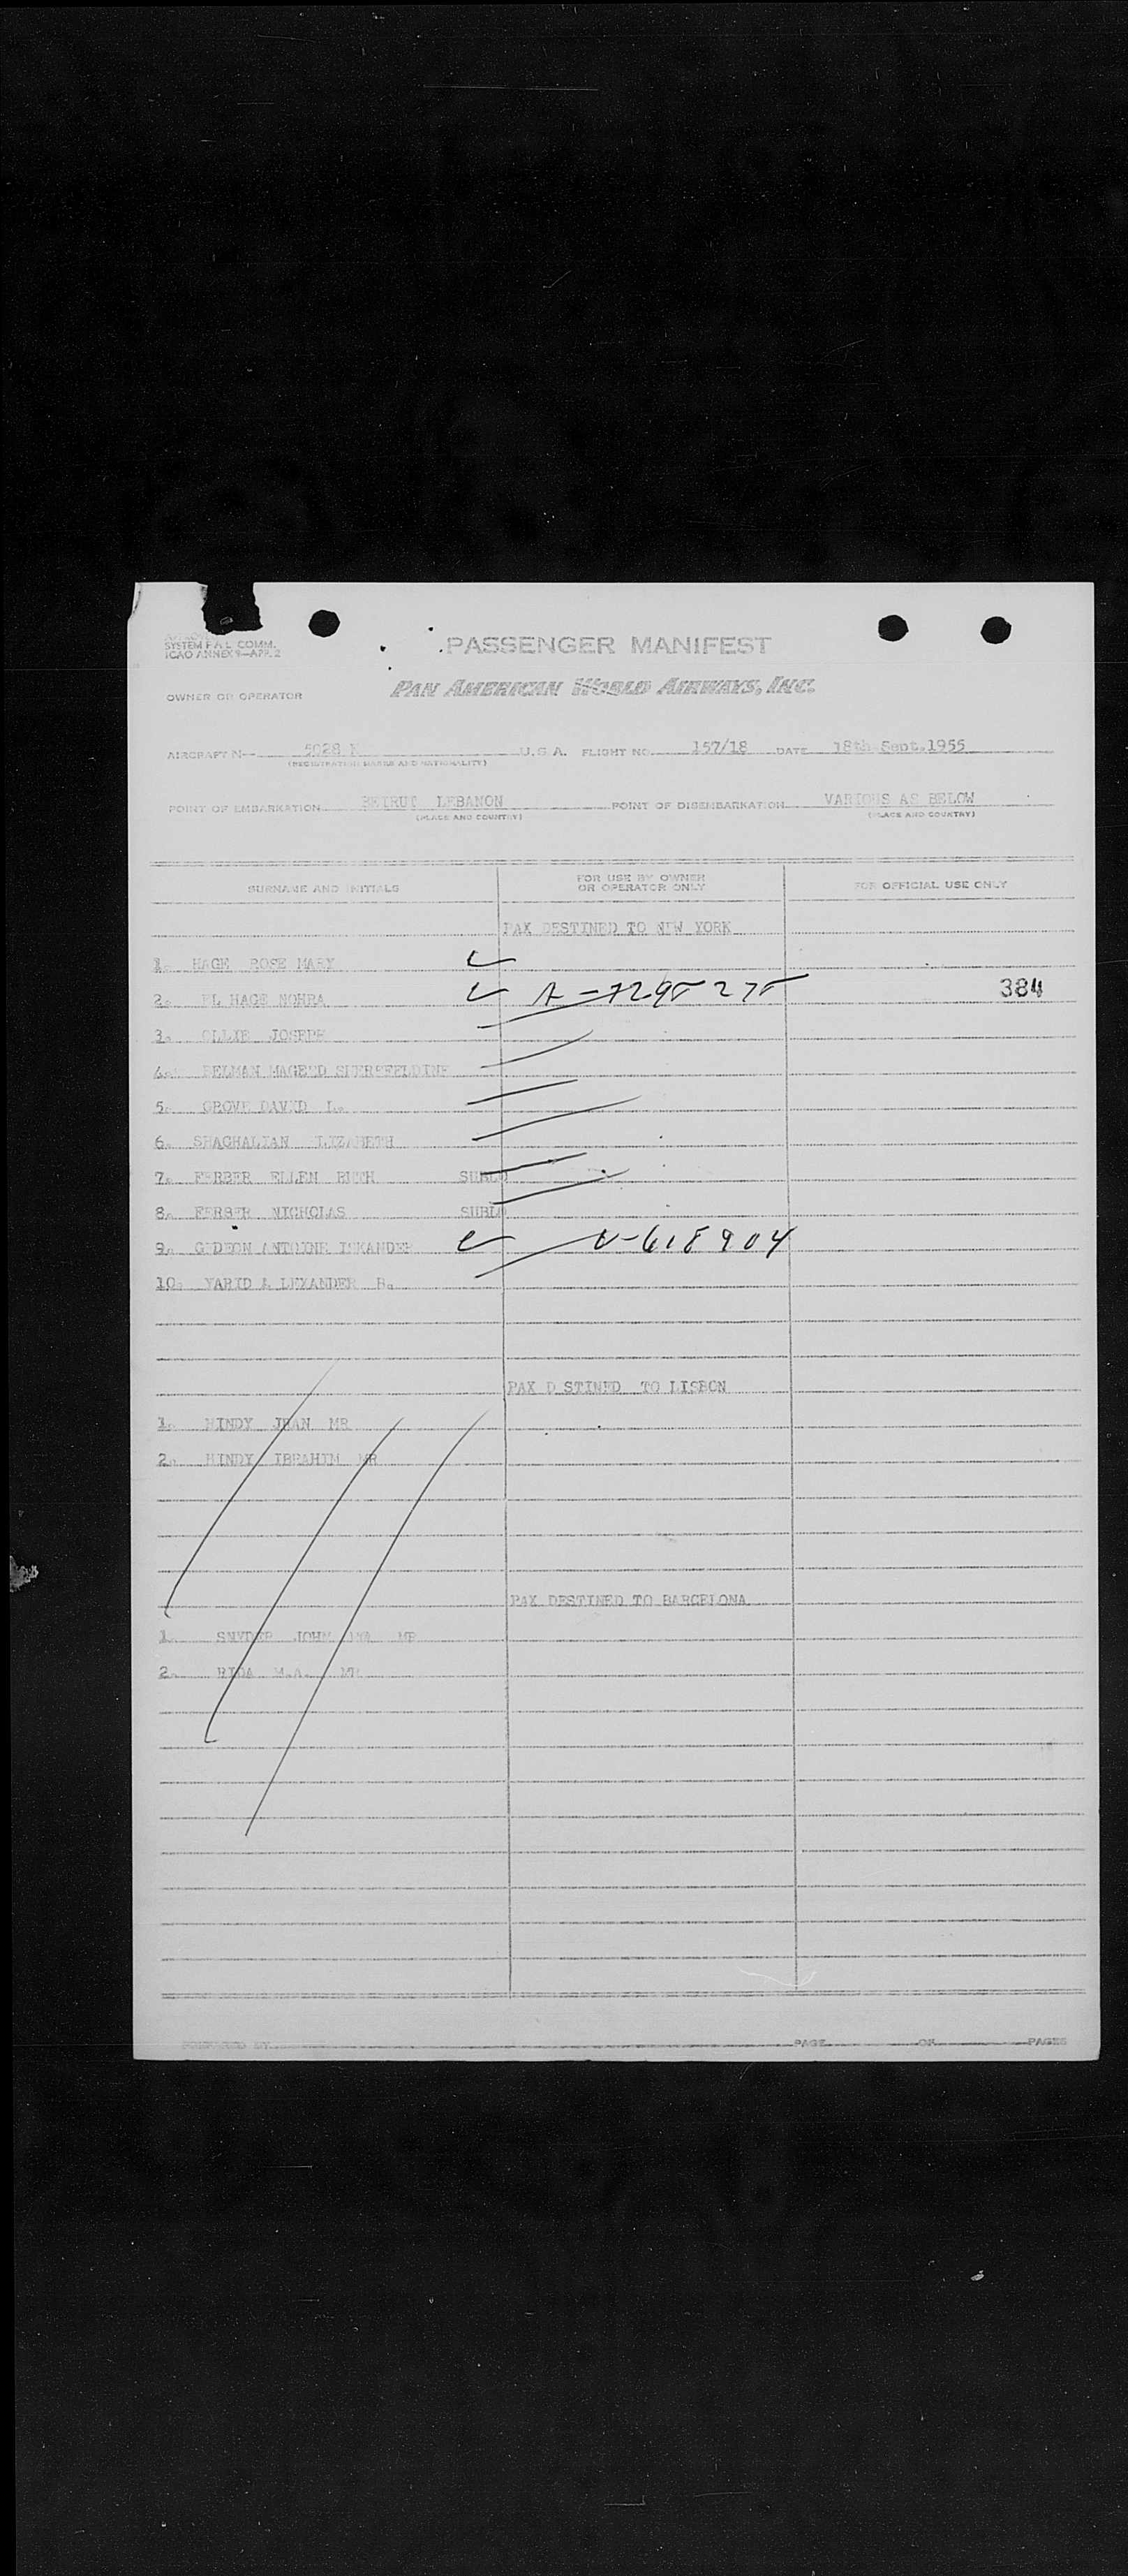 SYSTEM P.A.L. COMM.
ICAO ANNEX 9—APP. 2
PASSENGER MANIFEST
OWNER OR OPERATOR
PAN AMERICAN WORLD AIRWAYS, INC.
AIRCRAFT N— 5028 K U.S.A. FLIGHT NO. 157/18 DATE 18th Sept.1955
(REGISTRATION MARKS AND NATIONALITY)
POINT OF EMBARKATION BEIRUT LEBANON POINT OF DISEMBARKATION VARIOUS AS BELOW
(PLACE AND COUNTRY) (PLACE AND COUNTRY)
SURNAME AND INITIALS FOR USE BY OWNER OR OPERATOR ONLY FOR OFFICIAL USE ONLY
PAX DESTINED TO NEW YORK
1. HAGE ROSE MARY
2. EL HAGE NOHRA A-7295275 384
3. OLLIE JOSEPH
4. MAGEED
5. GROVE DAVID L.
6. SHAGHALIAN ELIZABETH
7. FERBER ELLEN RUTH SUBLO
8. FERBER NICHOLAS SUBLO
9. GEDEON ANTOINE ISKANDER V-618904
10. YARID A LEXANDER B.
PAX D STINED TO LISBON
1. HINDY JEAN MR
2. HINDY IBRAHIM MR
PAX DESTINED TO BARCELONA
1. SNYDER JOHN MR
2. RIDA M.A. MR
PREPARED BY PAGE OF PAGES